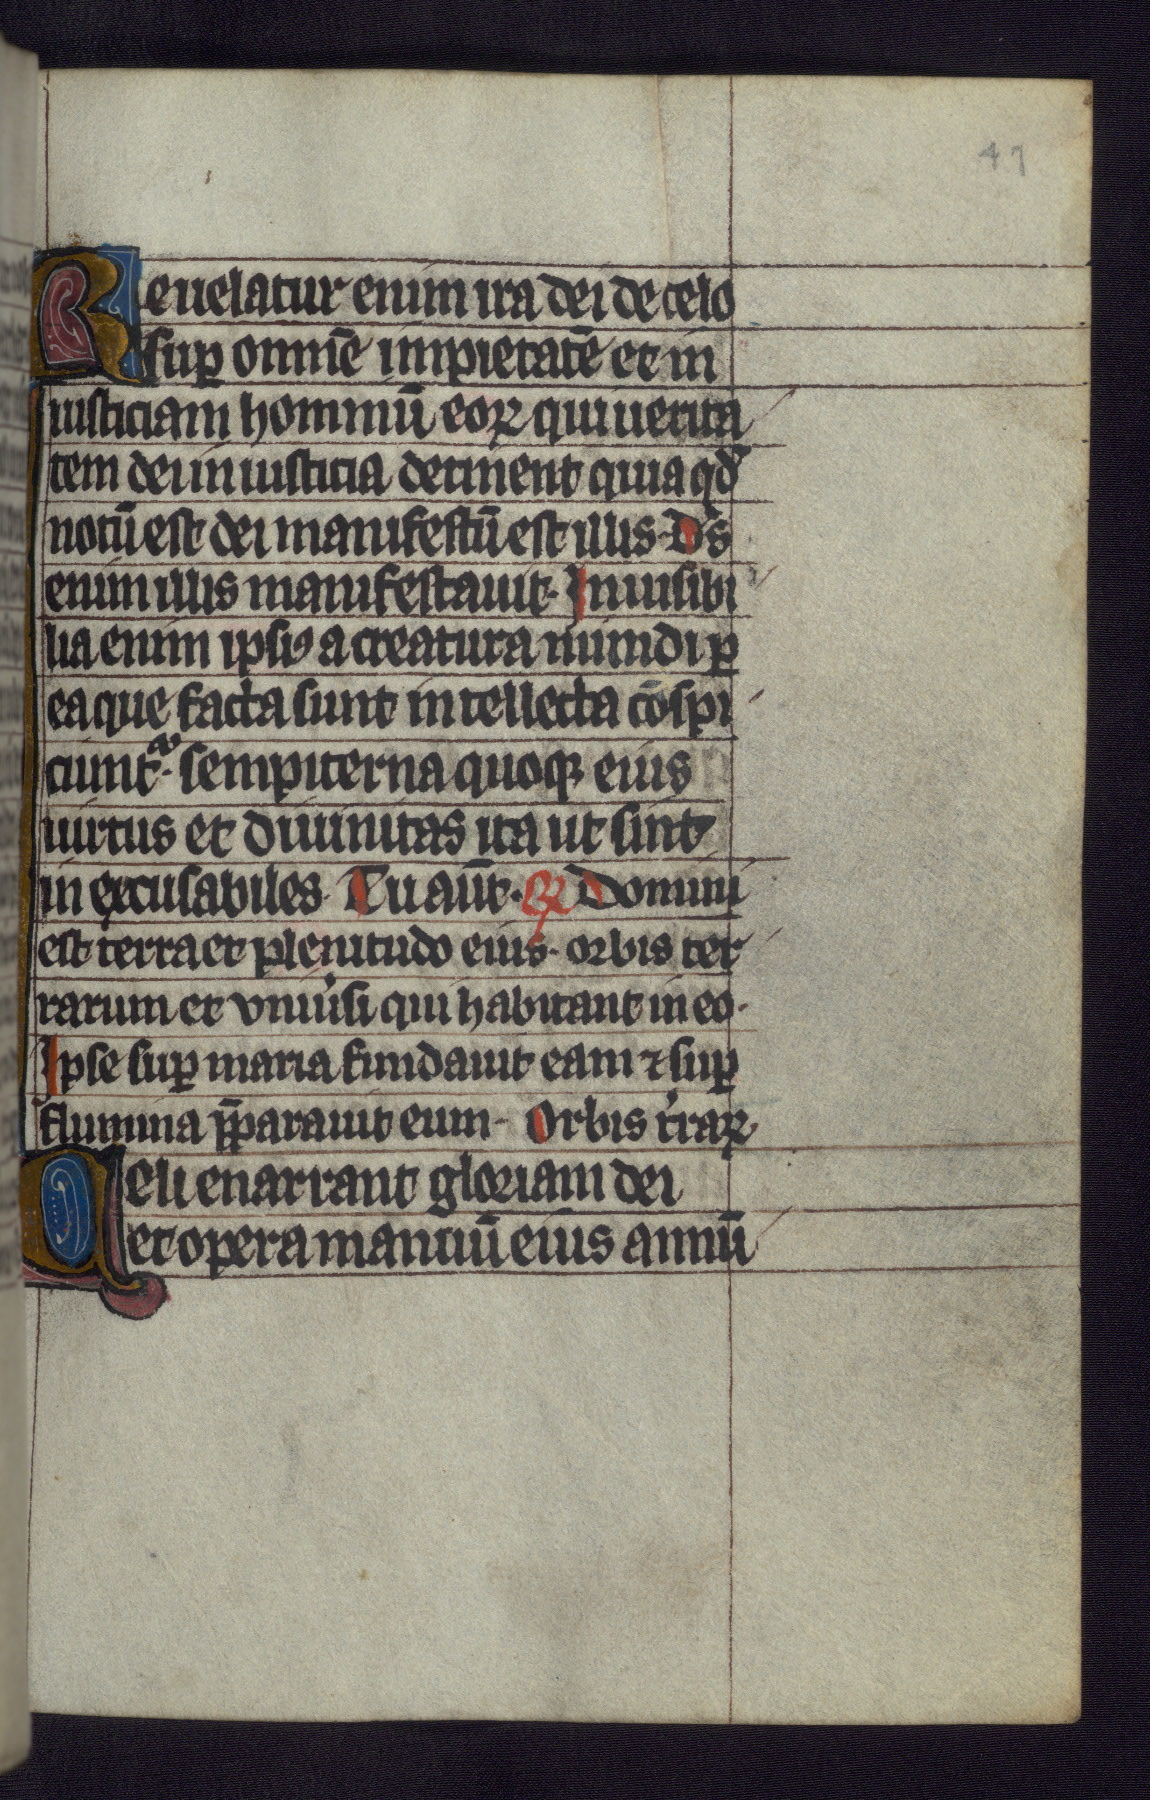 47
Reuelatur enim ira dei de celo
sup̲ omnē impietatē et in
iusticiam hominū eoꝝ qui uerita
tem dei in iusticia detinent quia qd̄
notū est dei manifestū est illis. D̄s
enim illis manifestauit. Inuisibi
lia enim ipsiꝰ a creatura mundi ꝑ
ea que facta sunt intellecta cōspi
ciunt᷑. sempiterna quoqꝫ eius
uirtus et diuinitas ita ut sint
inexcusabiles. Tu aūt. ꝶ Domini
est terra et plenitudo eius. orbis ter
rarum et vniu̾si qui habitant in eo.
Ipse suꝑ maria fundauit eam ⁊ suꝑ
flumina p̄parauit eum. Orbis t̾raꝝ
Celi enarrant gloriam dei
et opera manuū eius annū